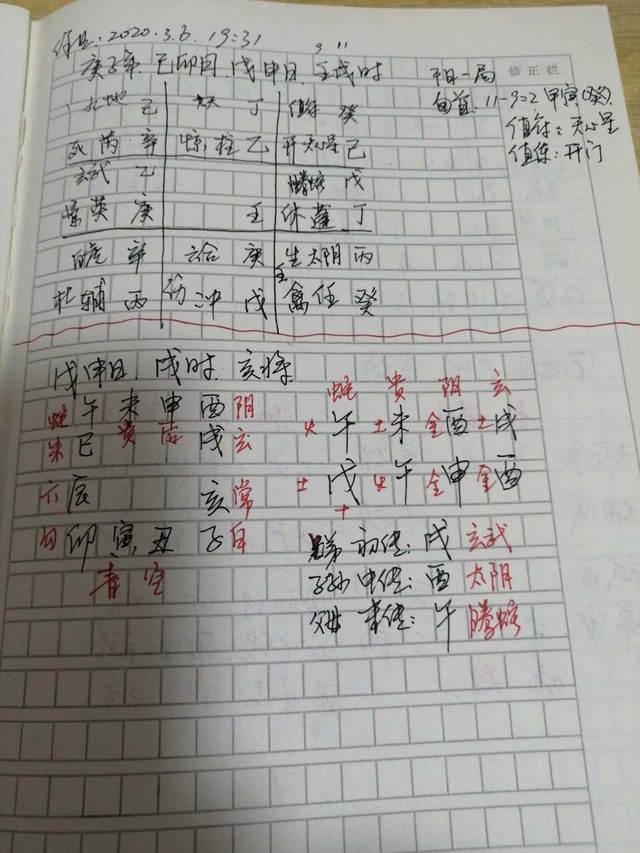 2020.3.6. 19:31
9 11
庚子年 己卯月 戊申日 壬戌时
修正栏
一局
旬首 11-9=2 甲寅(癸)
值符:天心星
值使:开门
九地 己 九天 丁 值符 癸
死芮 辛 惊柱 乙 开天心星 己
玄武 乙 螣蛇 戊
景英 庚 壬 休蓬 丁
白虎 辛 六合 庚 生太阴 丙
杜辅 丙 伤冲 戊 禽任 癸
戊申日 戌时 亥将
蛇 贵 阴 玄
蛇 午 未 申 酉 阴
朱 巳 贵 后 戌 玄
火 午 土 未 金 酉 土 戌
六 辰 亥 常
土 戊 火 午 金 申 金 酉
勾 卯 寅 丑 子 白
青 空
兄弟 初传:戌 玄武
子孙 中传:酉 太阴
父母 末传:午 螣蛇